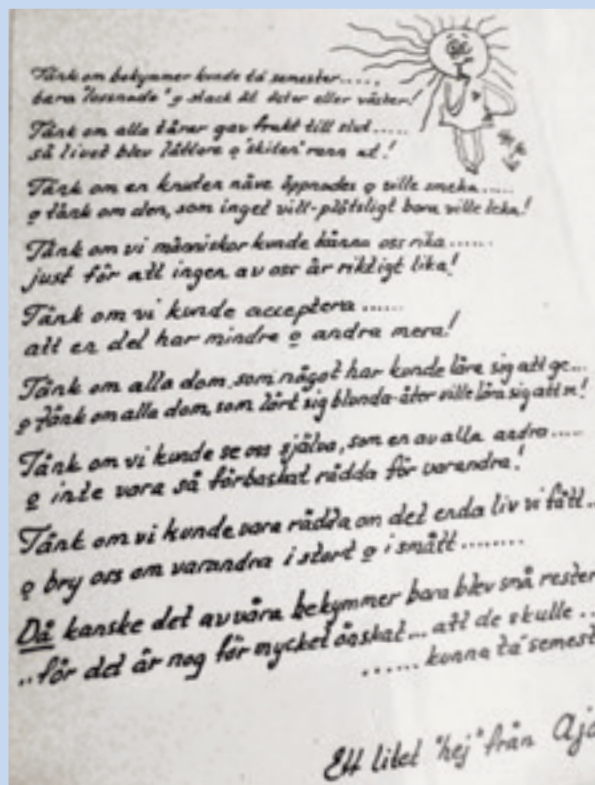 Tänk om bekymmer kunde ta semester.....
bara "lossnade" o stack åt öster eller väster!
Tänk om alla tårar gav frukt till slut.....
så livet blev lättare o "skiten" rann ut!
Tänk om en knuten näve öppnades o ville smeka.....
o tänk om den, som inget vill-plötsligt bara ville leka!
Tänk om vi människor kunde känna oss rika......
just för att ingen av oss är riktigt lika!
Tänk om vi kunde acceptera......
att en del har mindre o andra mera!
Tänk om alla dom, som något har kunde lära sig att ge...
o tänk om alla dom, som lärt sig blunda-åter ville lära sig att se!
Tänk om vi kunde se oss själva, som en av alla andra.....
o inte vara så förbaskat rädda för varandra!
Tänk om vi kunde vara rädda om det enda liv vi fått..
o bry oss om varandra i stort o i smått........
Då kanske det av våra bekymmer bara blev små rester
..för det är nog för mycket önskat... att de skulle ..
...... kunna ta semest
Ett litet "hej" från